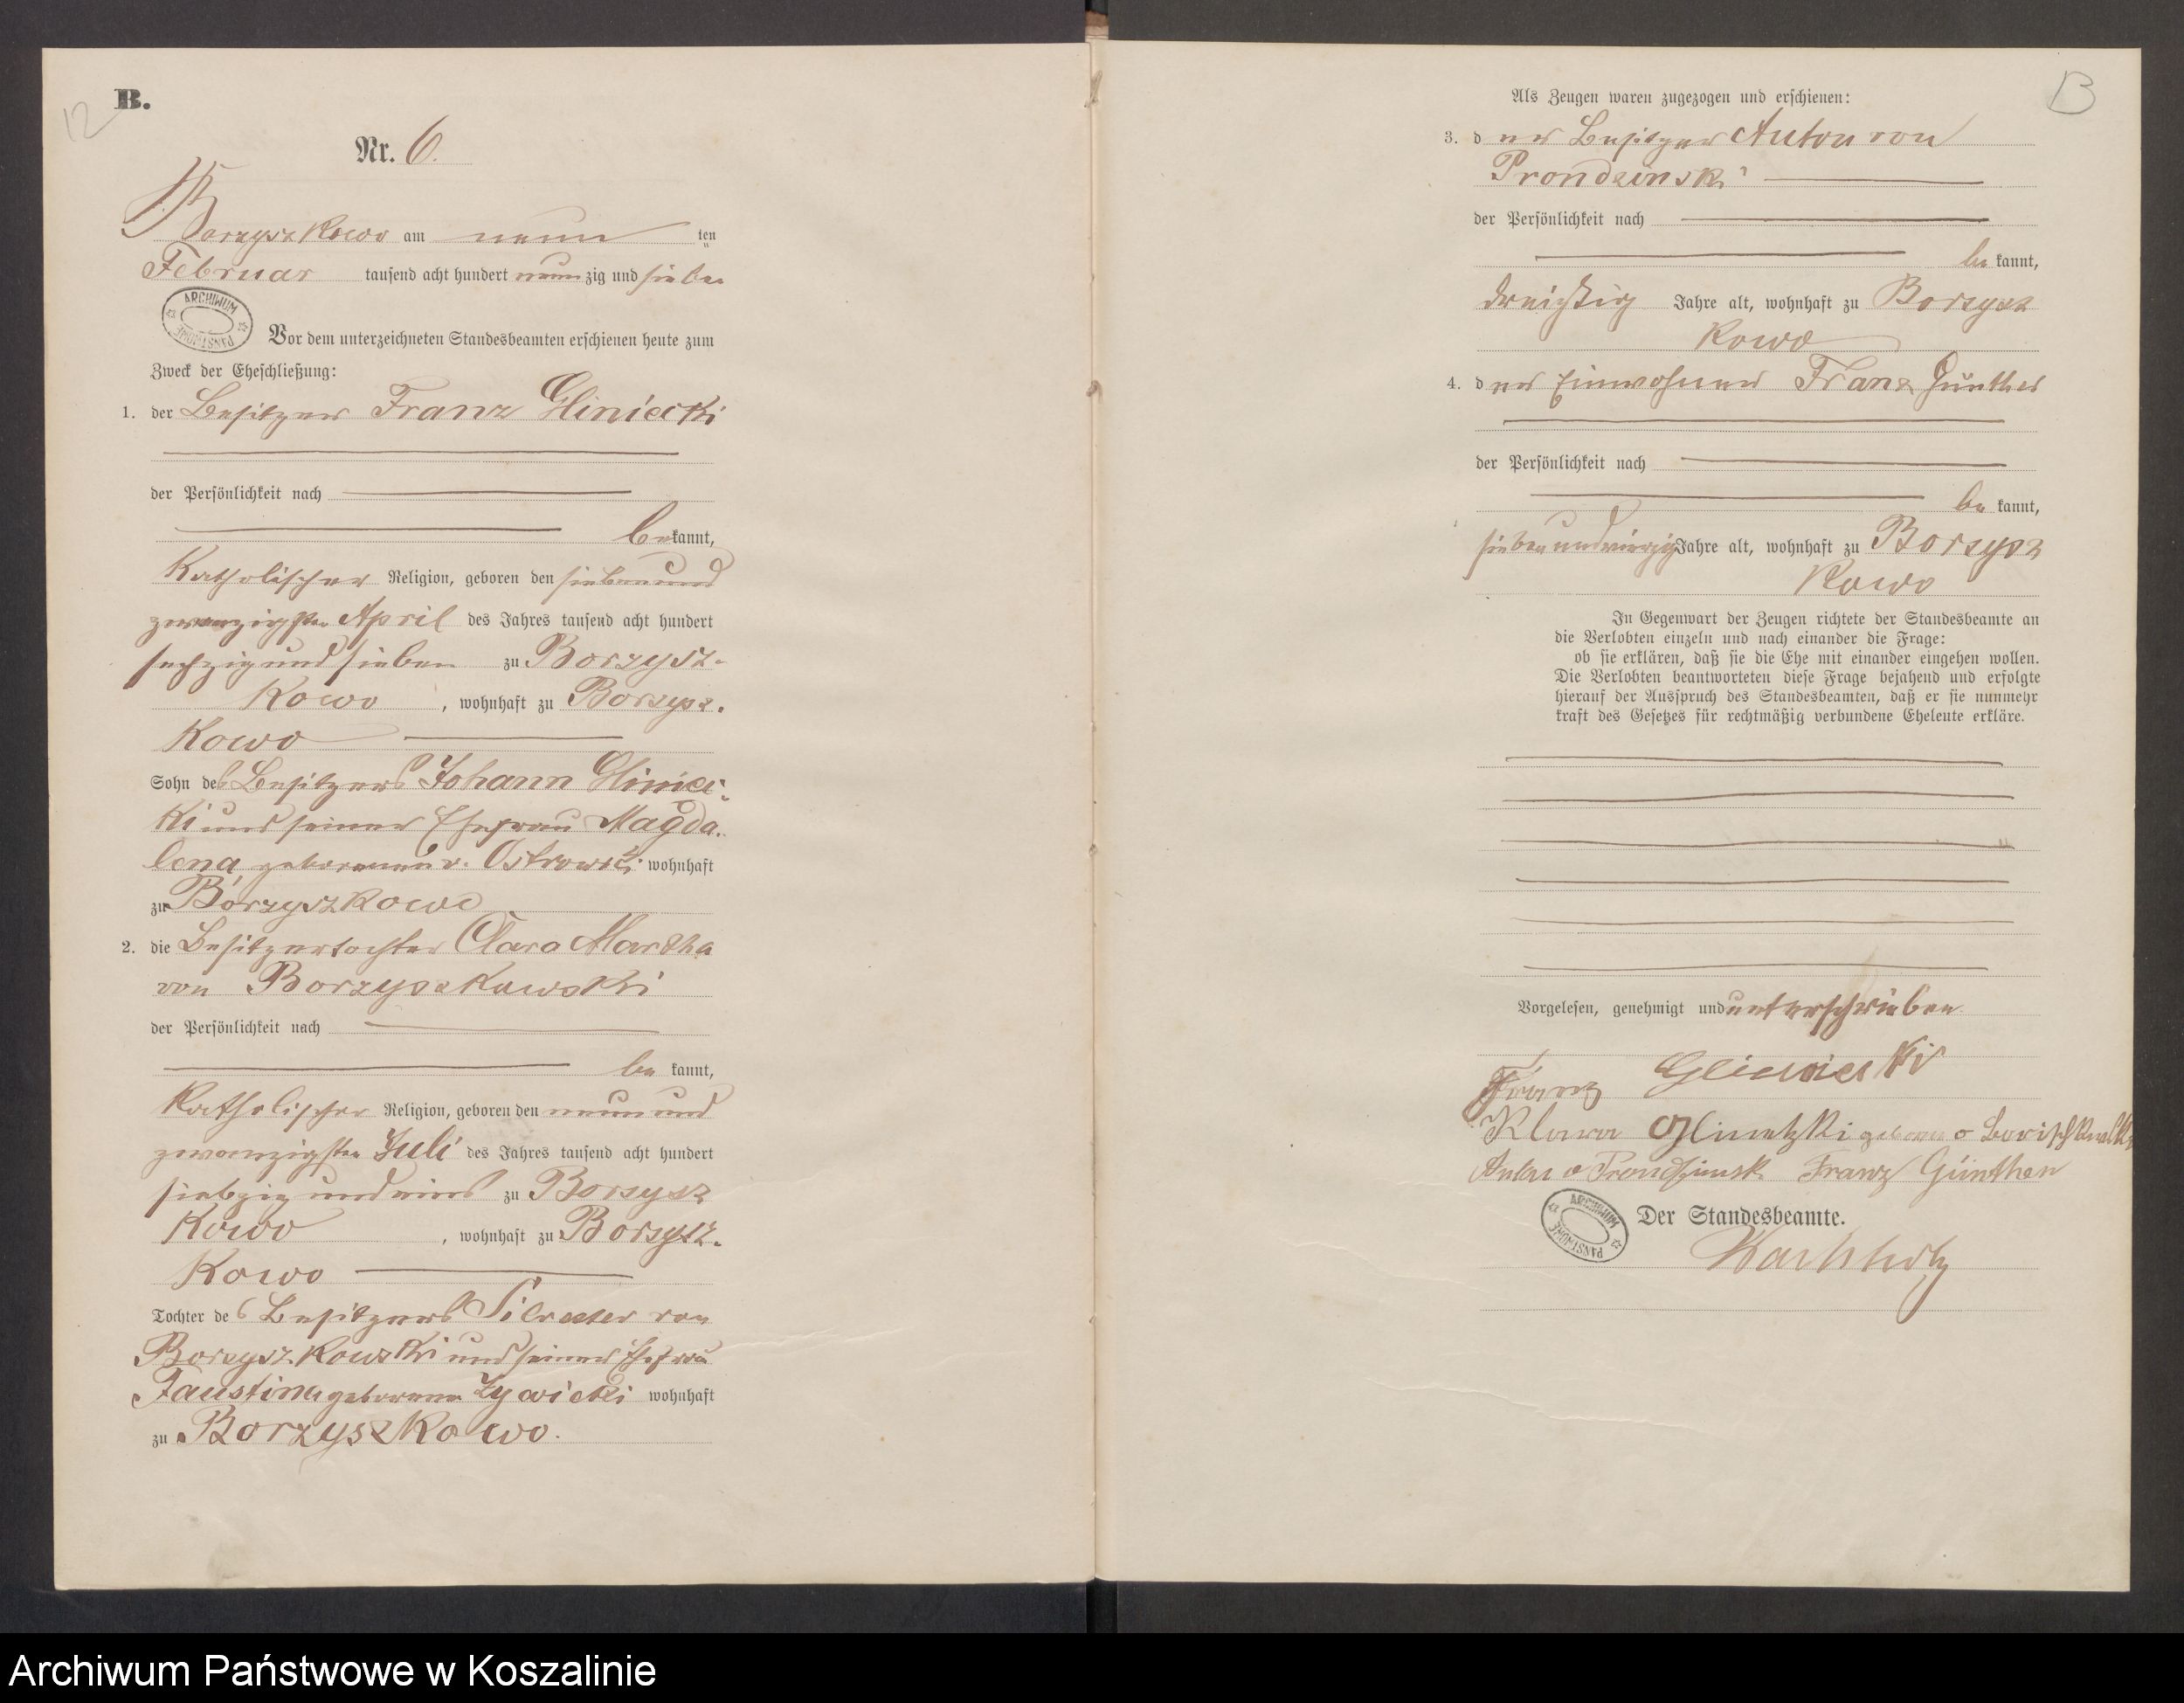 B.
12
Nr. 6.
Borzyszkowo am neun ten
Februar tausend acht hundert neunzig und sieben
ARCHIWUM PAŃSTWOWE
Vor dem unterzeichneten Standesbeamten erschienen heute zum
Zweck der Eheschließung:
1. der Besitzer Franz Gliniecki
der Persönlichkeit nach
bekannt,
Katholischer Religion, geboren den siebenund
zwanzigsten April des Jahres tausend acht hundert
sechzig und sieben zu Borzysz-
kowo, wohnhaft zu Borzysz-
kowo
Sohn des Besitzers Johann Gliniec-
ki und seiner Ehefrau Magda-
lena geborenen v. Ostrowski wohnhaft
zu Borzyszkowo
2. die Besitzertochter Clara Martha
von Borzyszkowski
der Persönlichkeit nach
bekannt,
Katholischer Religion, geboren den neunund
zwanzigsten Juli des Jahres tausend acht hundert
siebzig und eins zu Borzysz
kowo, wohnhaft zu Borzysz-
kowo
Tochter des Besitzers Silvester von
Borzyszkowski und seiner Ehefrau
Faustina geborenen Zywicki wohnhaft
zu Borzyszkowo.
13
Als Zeugen waren zugezogen und erschienen:
3. der Besitzer Anton von
Prondzinski
der Persönlichkeit nach
bekannt,
dreißig Jahre alt, wohnhaft zu Borzysz
kowo
4. der Einwohner Franz Günther
der Persönlichkeit nach
bekannt,
siebenundvierzig Jahre alt, wohnhaft zu Borzysz
kowo
In Gegenwart der Zeugen richtete der Standesbeamte an
die Verlobten einzeln und nach einander die Frage:
ob sie erklären, daß sie die Ehe mit einander eingehen wollen.
Die Verlobten beantworteten diese Frage bejahend und erfolgte
hierauf der Ausspruch des Standesbeamten, daß er sie nunmehr
kraft des Gesetzes für rechtmäßig verbundene Eheleute erkläre.
Vorgelesen, genehmigt und unterschrieben
Franz Gliniecki
Klara Glinetzki geborene v
Anton v Prondzinski Franz Günther
ARCHIWUM PAŃSTWOWE
Der Standesbeamte.
Archiwum Państwowe w Koszalinie